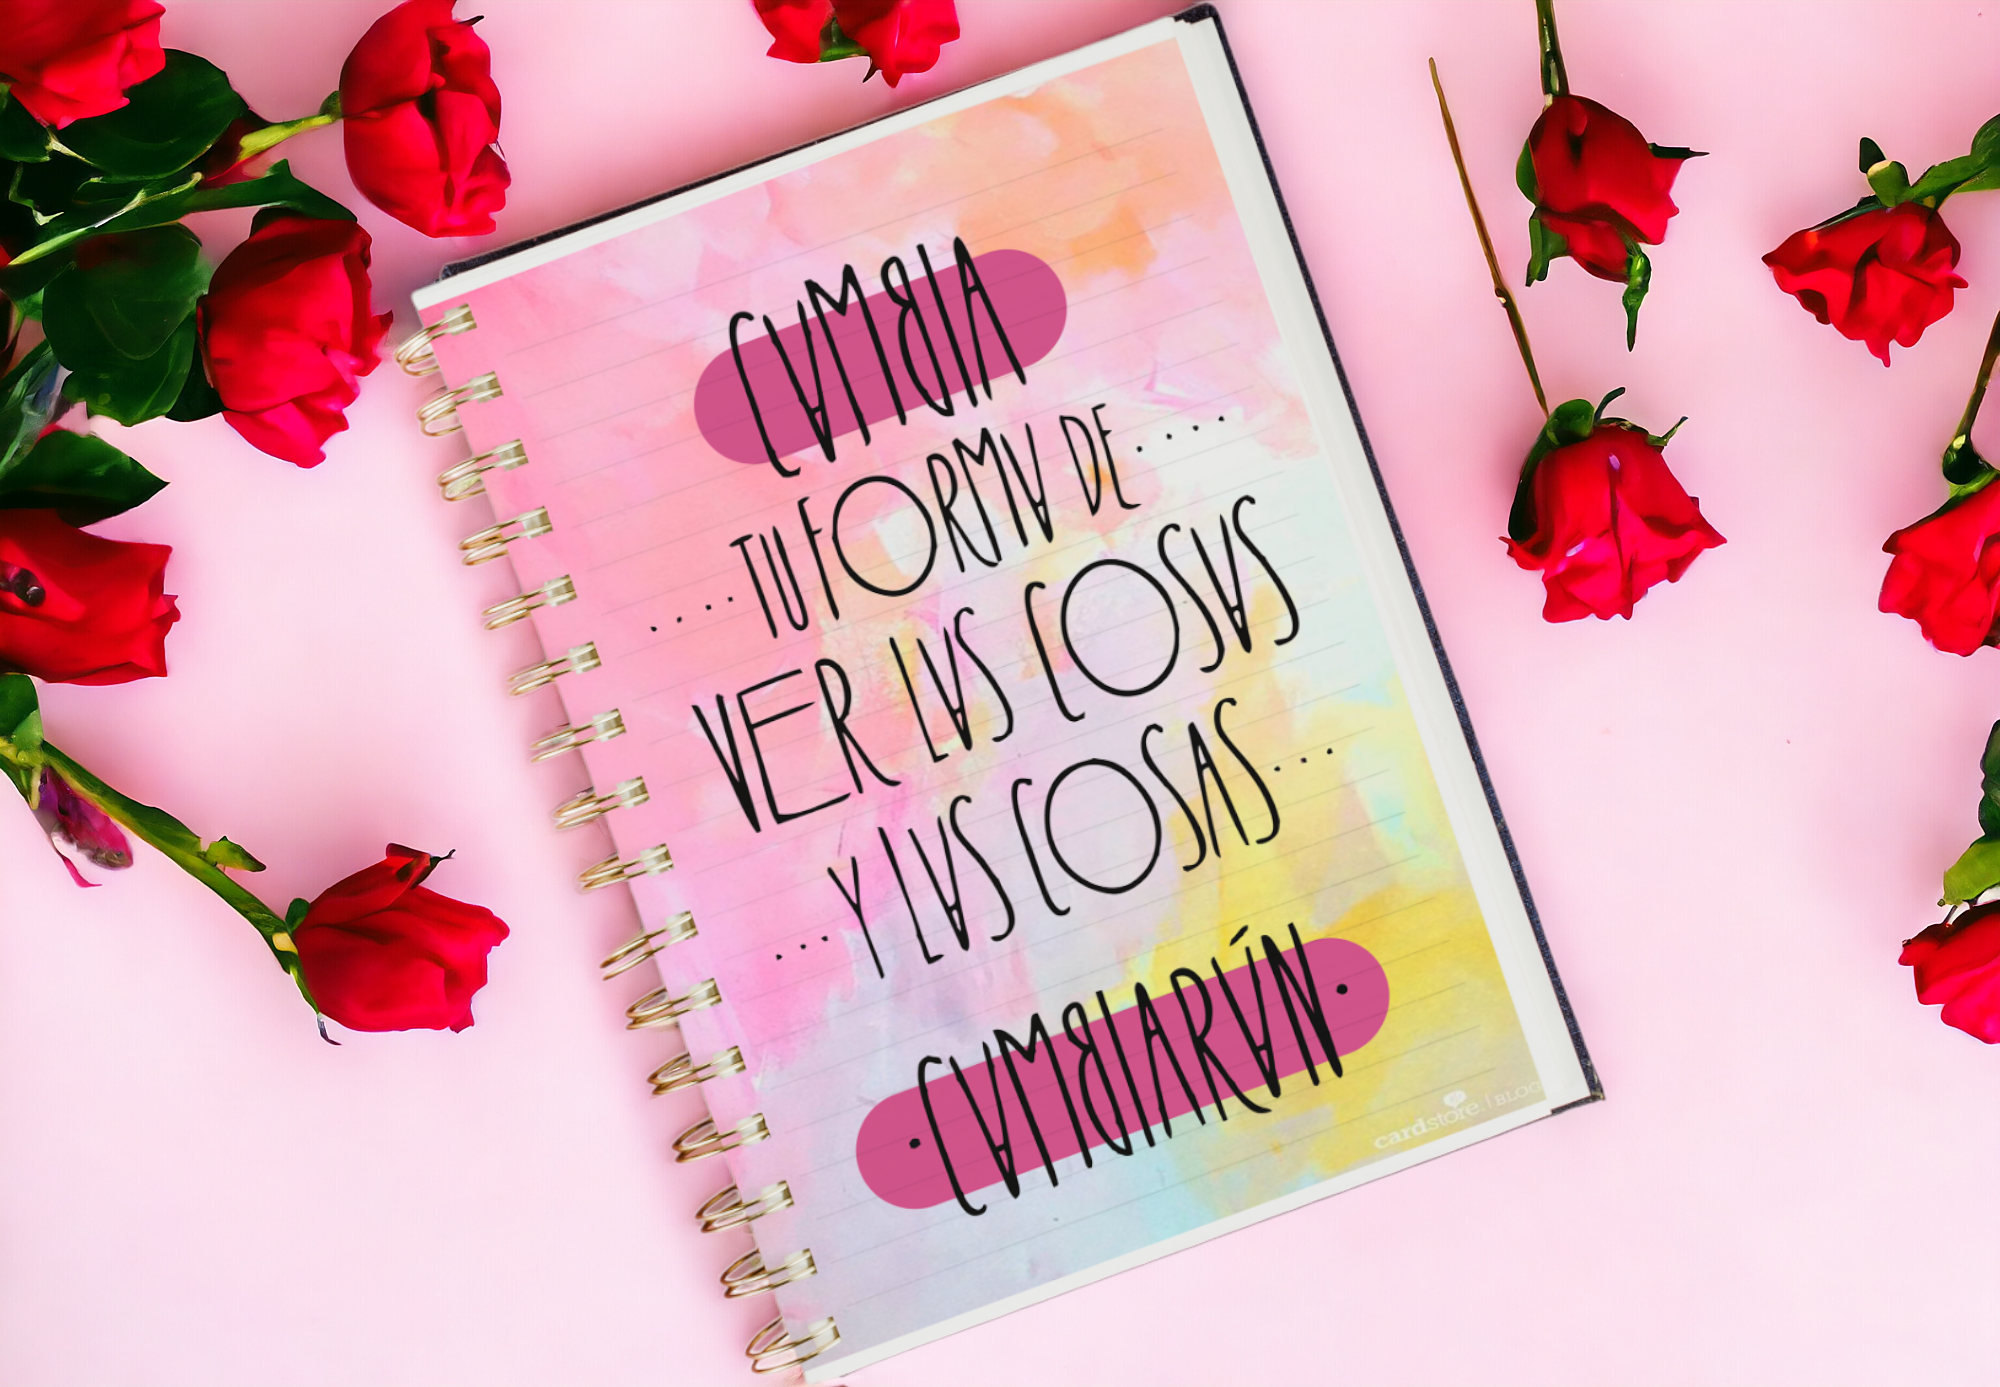 CAMBIA
....TU FORMA DE....
VER LAS COSAS
...Y LAS COSAS...
•CAMBIARÁN•
cardstore. | BLOG